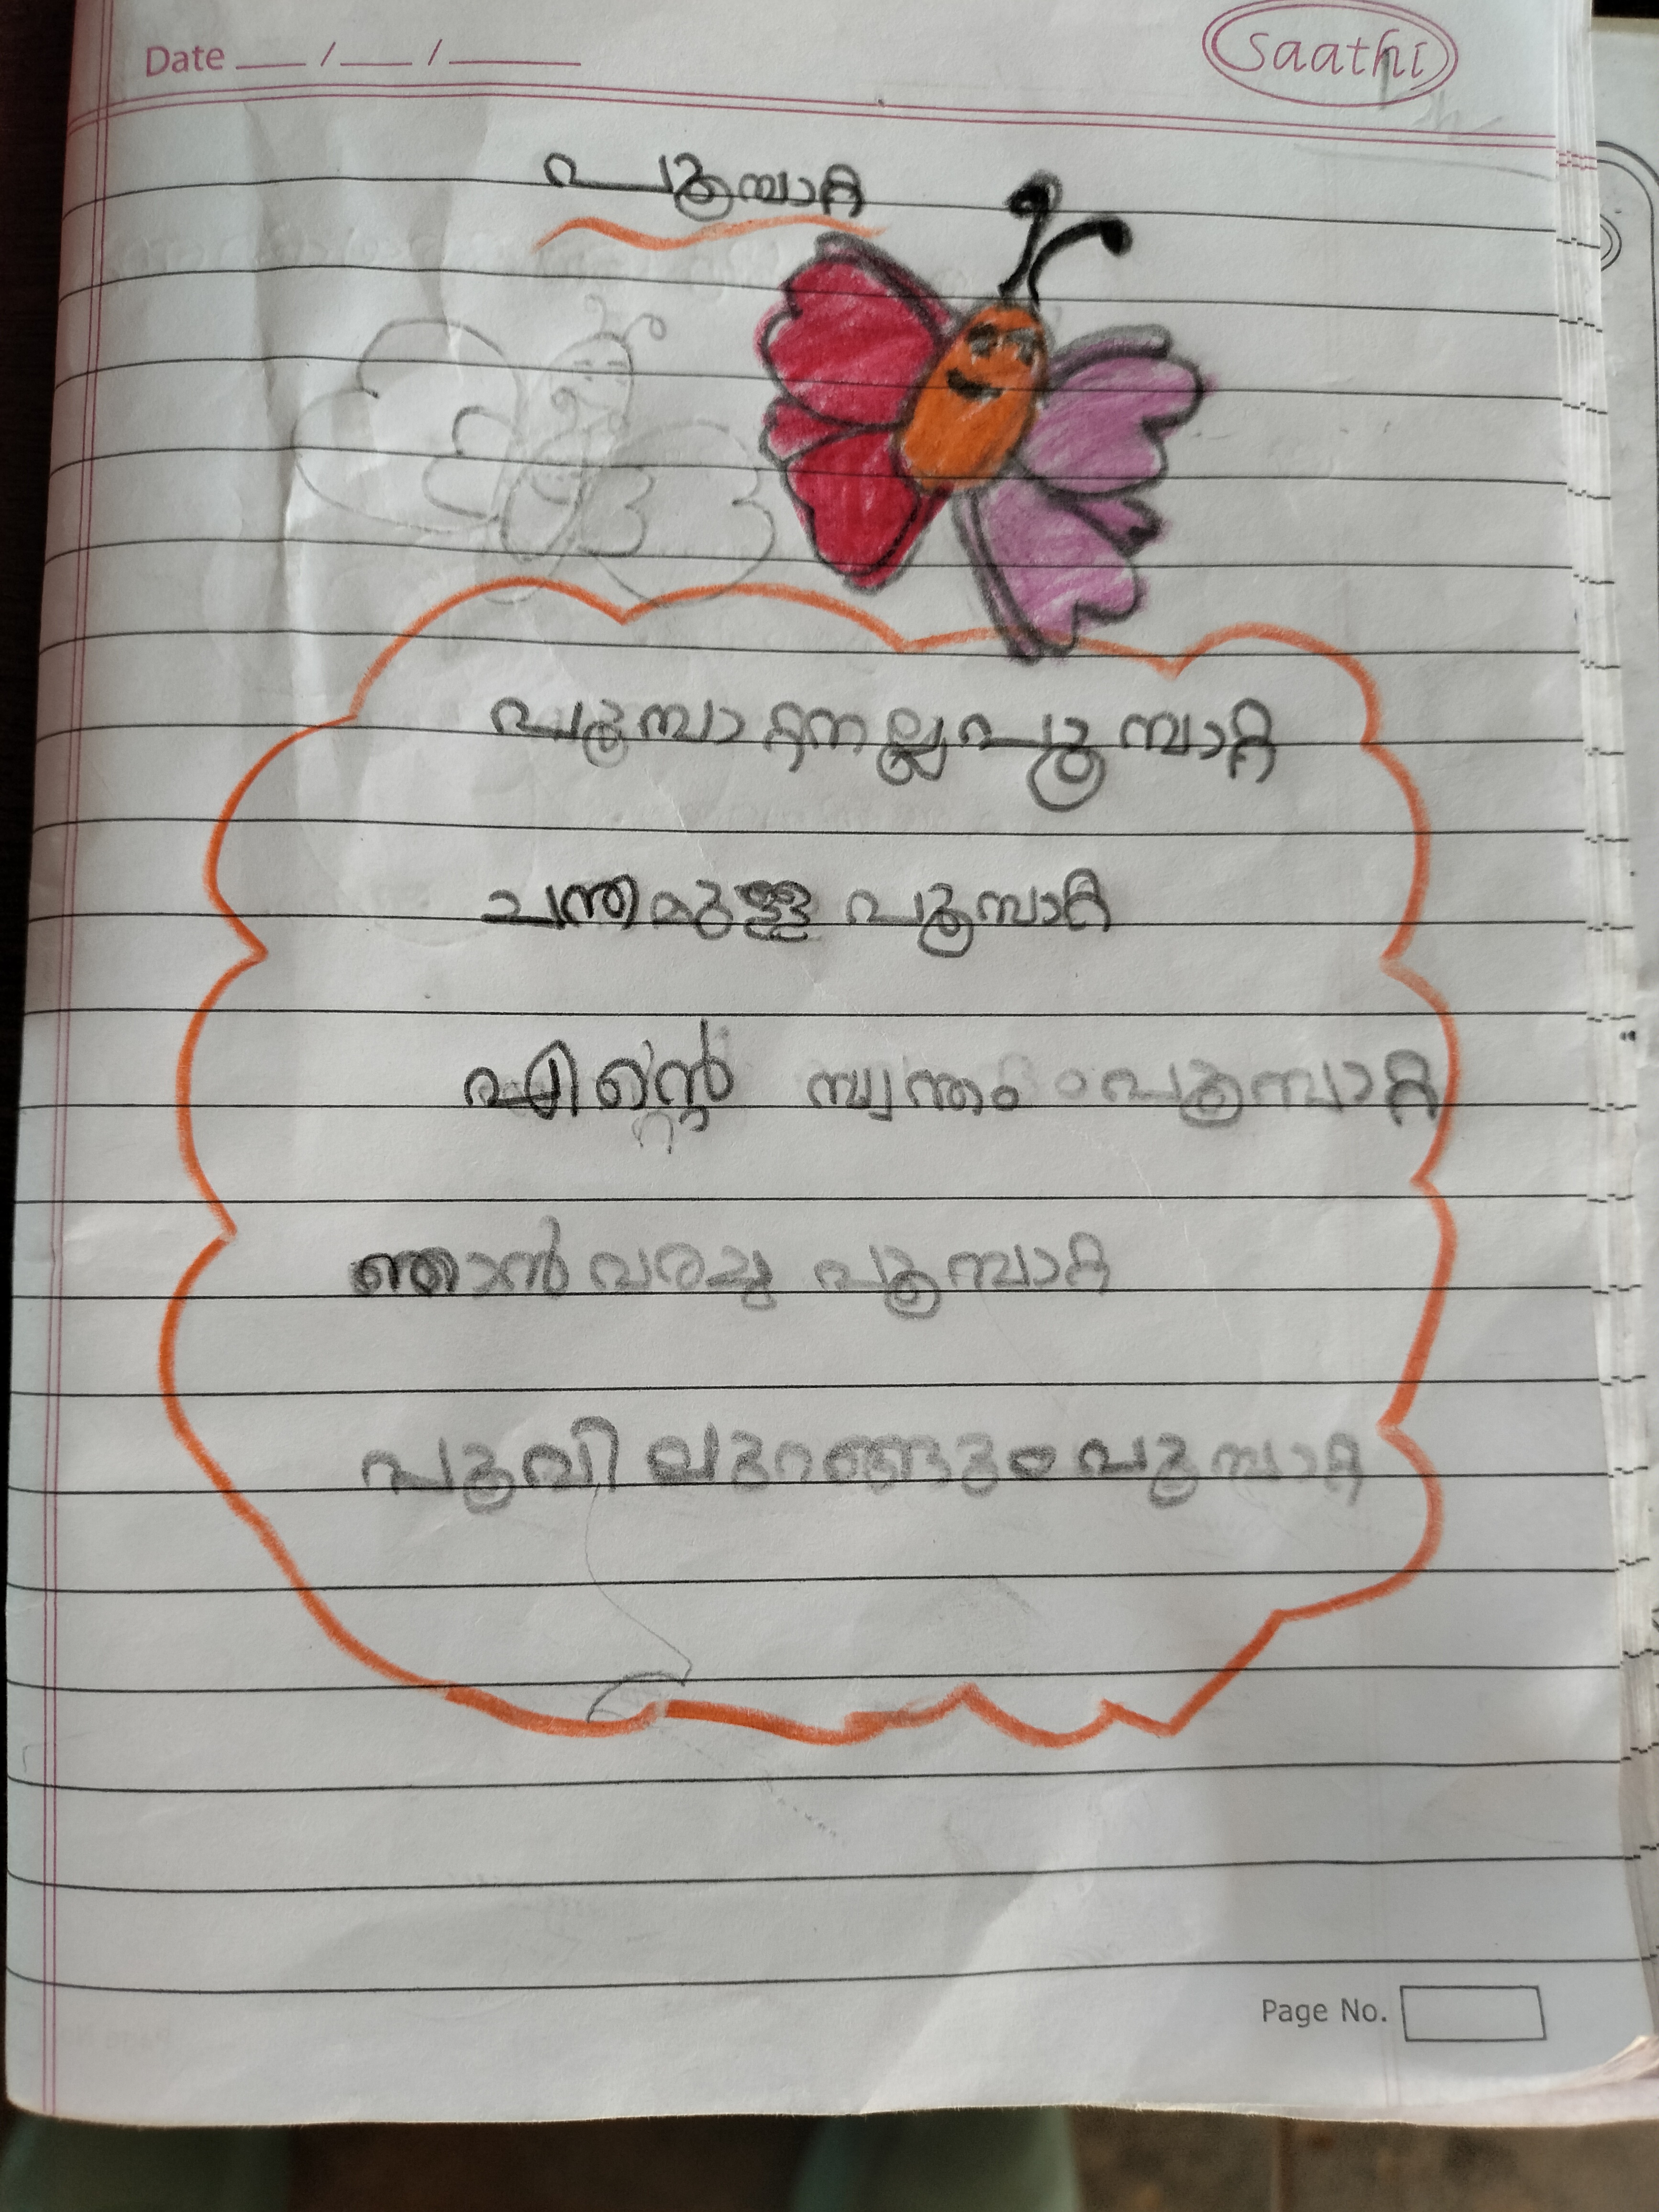 Date ___ / ___ / _____
Saathi
പൂമ്പാറ്റ
പൂമ്പാറ്റനല്ലപൂമ്പാറ്റ
ചന്തമുള്ള പൂമ്പാറ്റ
എിന്റെ സ്വന്തം പൂമ്പാറ്റ
ഞാൻ വരച്ച പൂമ്പാറ്റ
പൂവിലുറങ്ങും പൂമ്പാറ്റ
Page No.